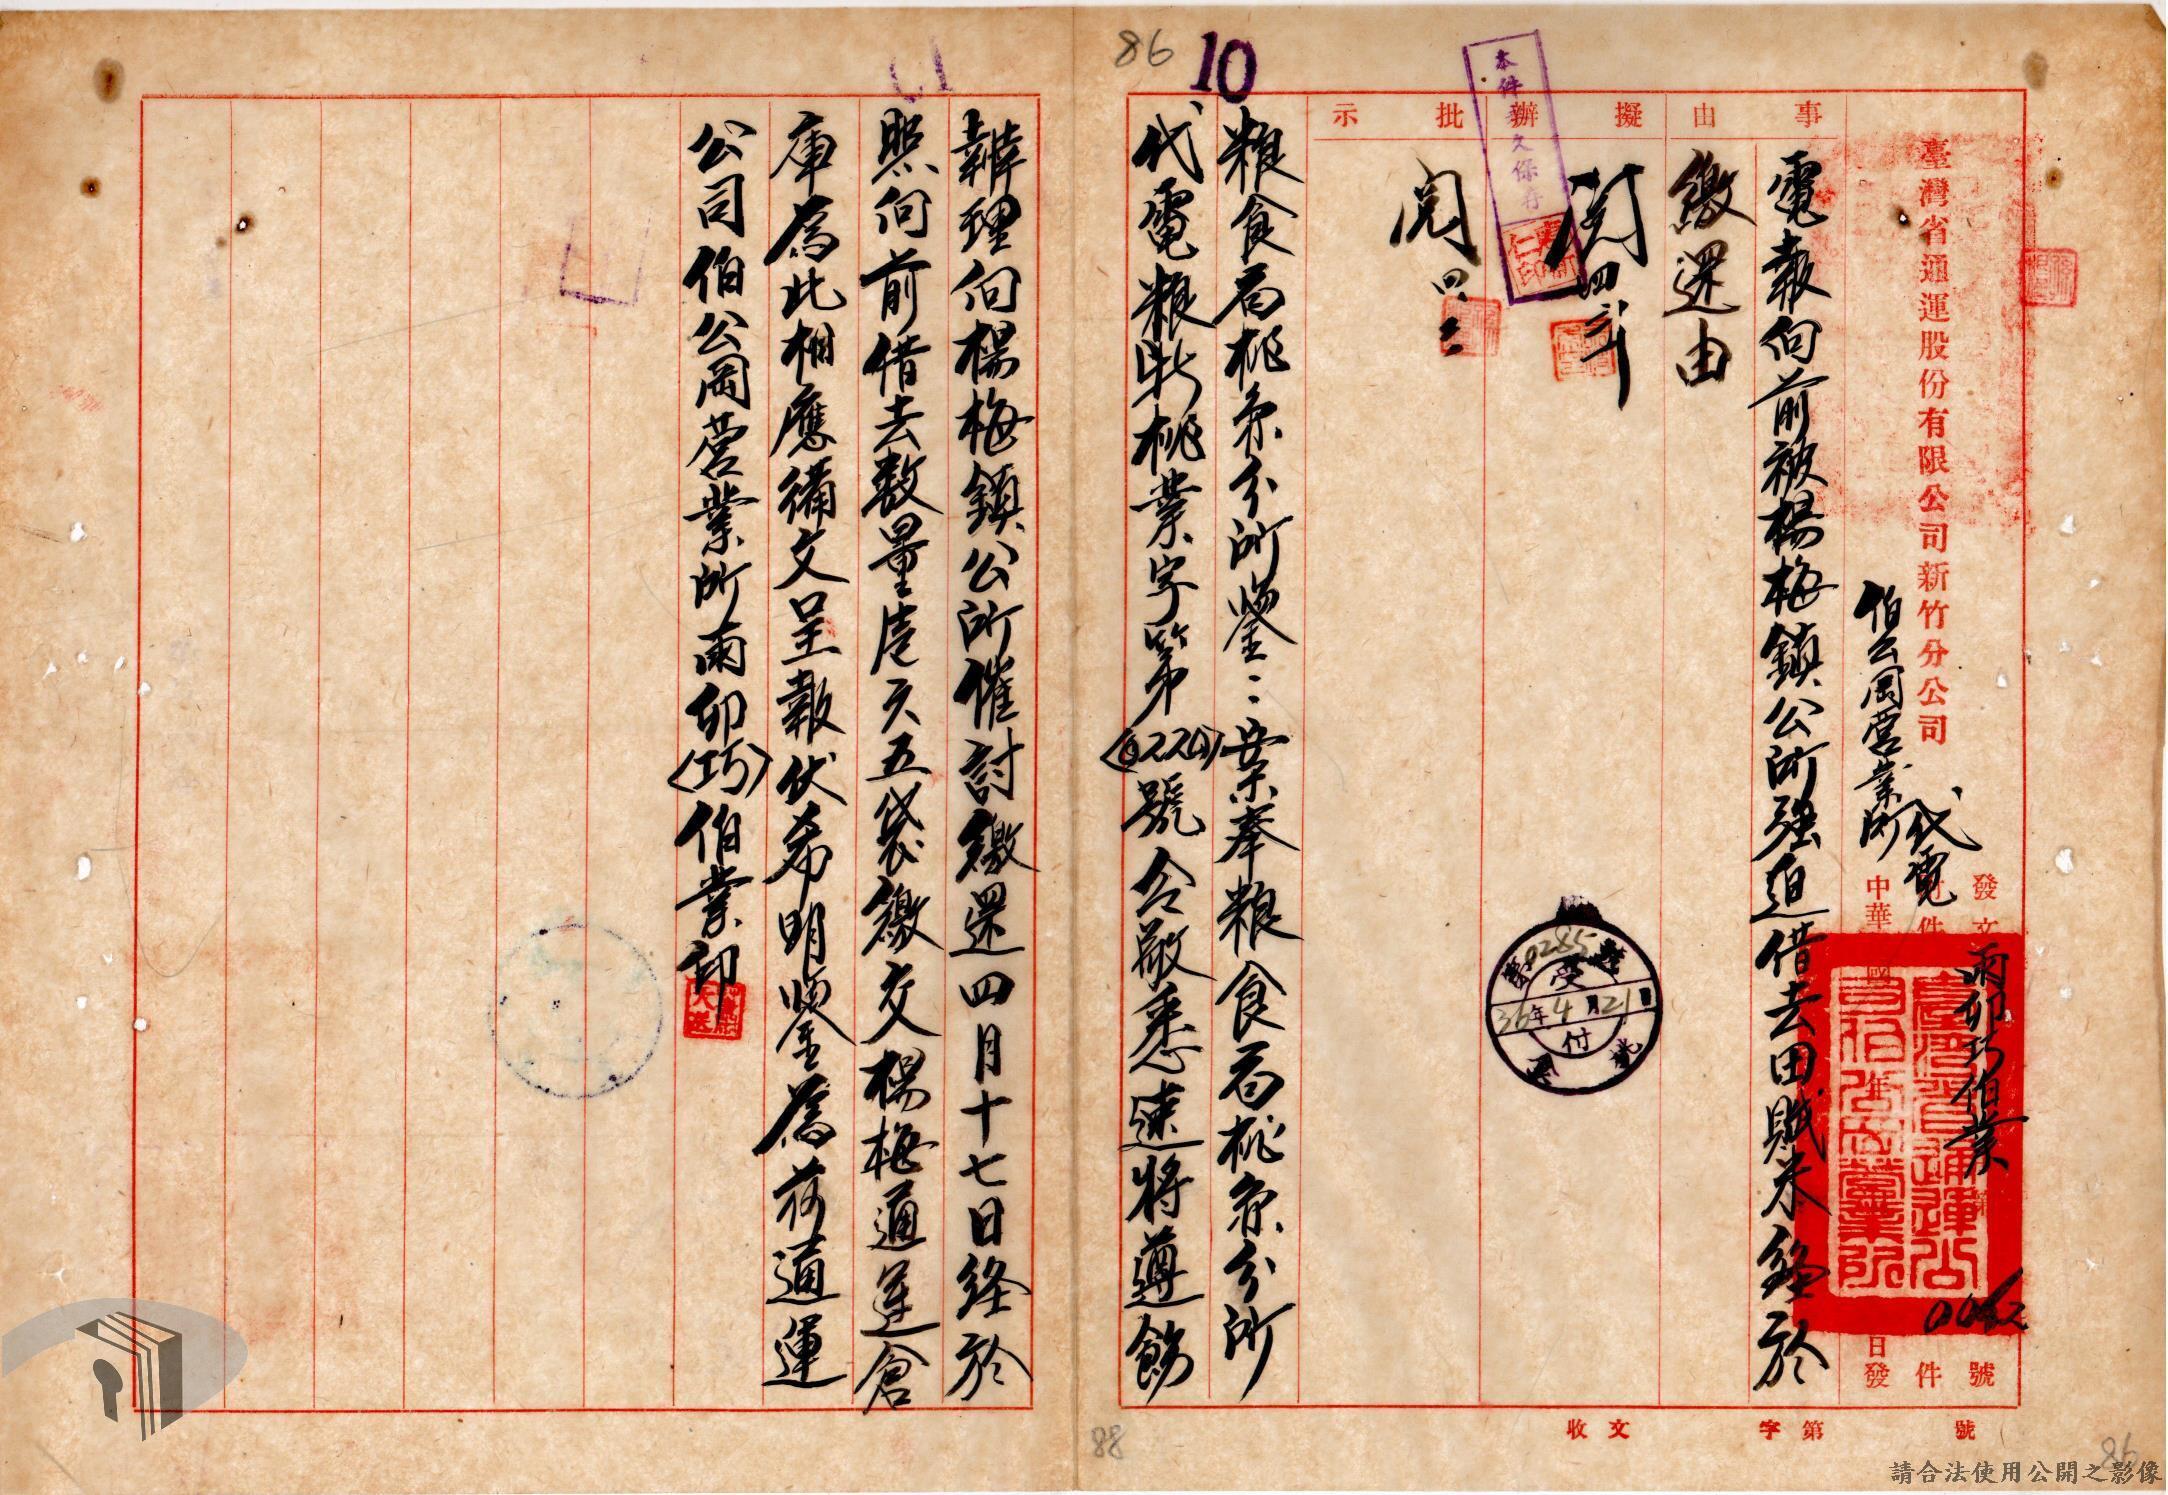 臺灣省通運股份有限公司新竹分公司
伯公岡营業所 代電
發文
雨卯巧伯業
第
號
件
中華國年
日發
事由
擬辦
批示
電報向前被楊梅鎮公所强迫借去田賦米經於
繳還由
閱 四
閱 四
本件
久保存
受付
0285
36年4月21日
粮食局桃糸分所鑒:案奉粮食局桃糸分所
代電粮卯桃業字第
號令敬悉速將遵飭
辦理向楊梅鎮公所催討繳還四月十七日経於
照向前借去数量
五袋繳交楊梅通運倉
庫為此相應備文呈報伏希明鑒為荷通運
公司伯公岡营業所雨卯〈巧〉伯業印
收文
字第
號
86
10
88
請合法使用公開之影像